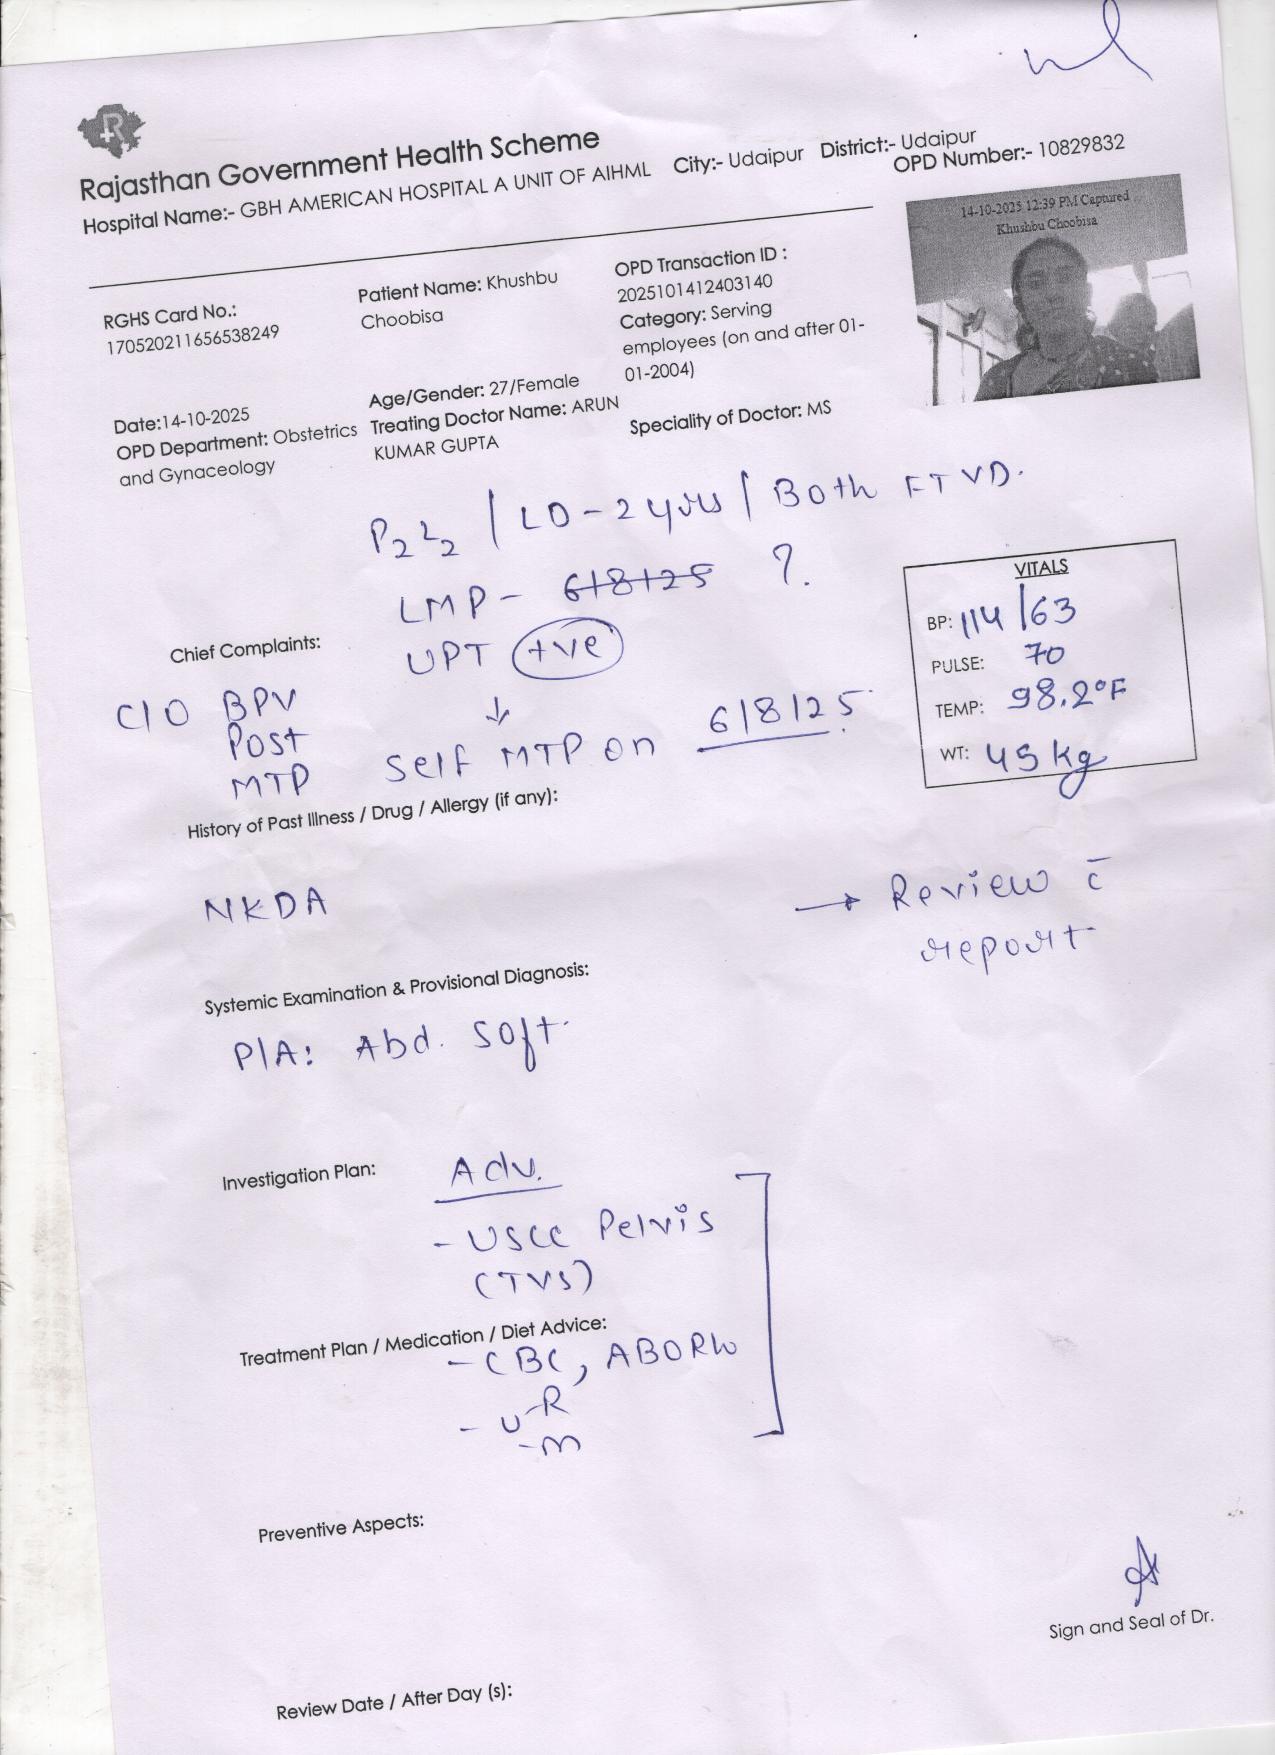 Rajasthan Government Health Scheme
Hospital Name:- GBH AMERICAN HOSPITAL A UNIT OF AIHML City:- Udaipur District:- Udaipur
OPD Number:- 10829832
14-10-2025 12:39 PM Captured
Khushbu Choobisa
RGHS Card No.:
170520211656538249
Patient Name: Khushbu
Choobisa
OPD Transaction ID :
2025101412403140
Category: Serving
employees (on and after 01-
01-2004)
Date:14-10-2025
OPD Department: Obstetrics
and Gynaceology
Age/Gender: 27/Female
Treating Doctor Name: ARUN
KUMAR GUPTA
Speciality of Doctor: MS
P2L2 | LD - 2 yrs | Both FTVD.
LMP - 6/8/25 ?
UPT +ve
↓
Self MTP on 6/8/25
Chief Complaints:
C/O BPV
Post
MTP
VITALS
BP: 114/63
PULSE: 70
TEMP: 98.2°F
WT: 45 kg
History of Past Illness / Drug / Allergy (if any):
NKDA
→ Review c̄
report
Systemic Examination & Provisional Diagnosis:
P/A: Abd. Soft.
Investigation Plan:
Adv.
- USG Pelvis
(TVS)
Treatment Plan / Medication / Diet Advice:
- CBC, ABORh
- U -R
-m
Preventive Aspects:
Sign and Seal of Dr.
Review Date / After Day (s):